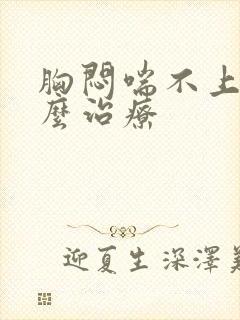 胸悶喘不上
麼治療
迎夏生深澤